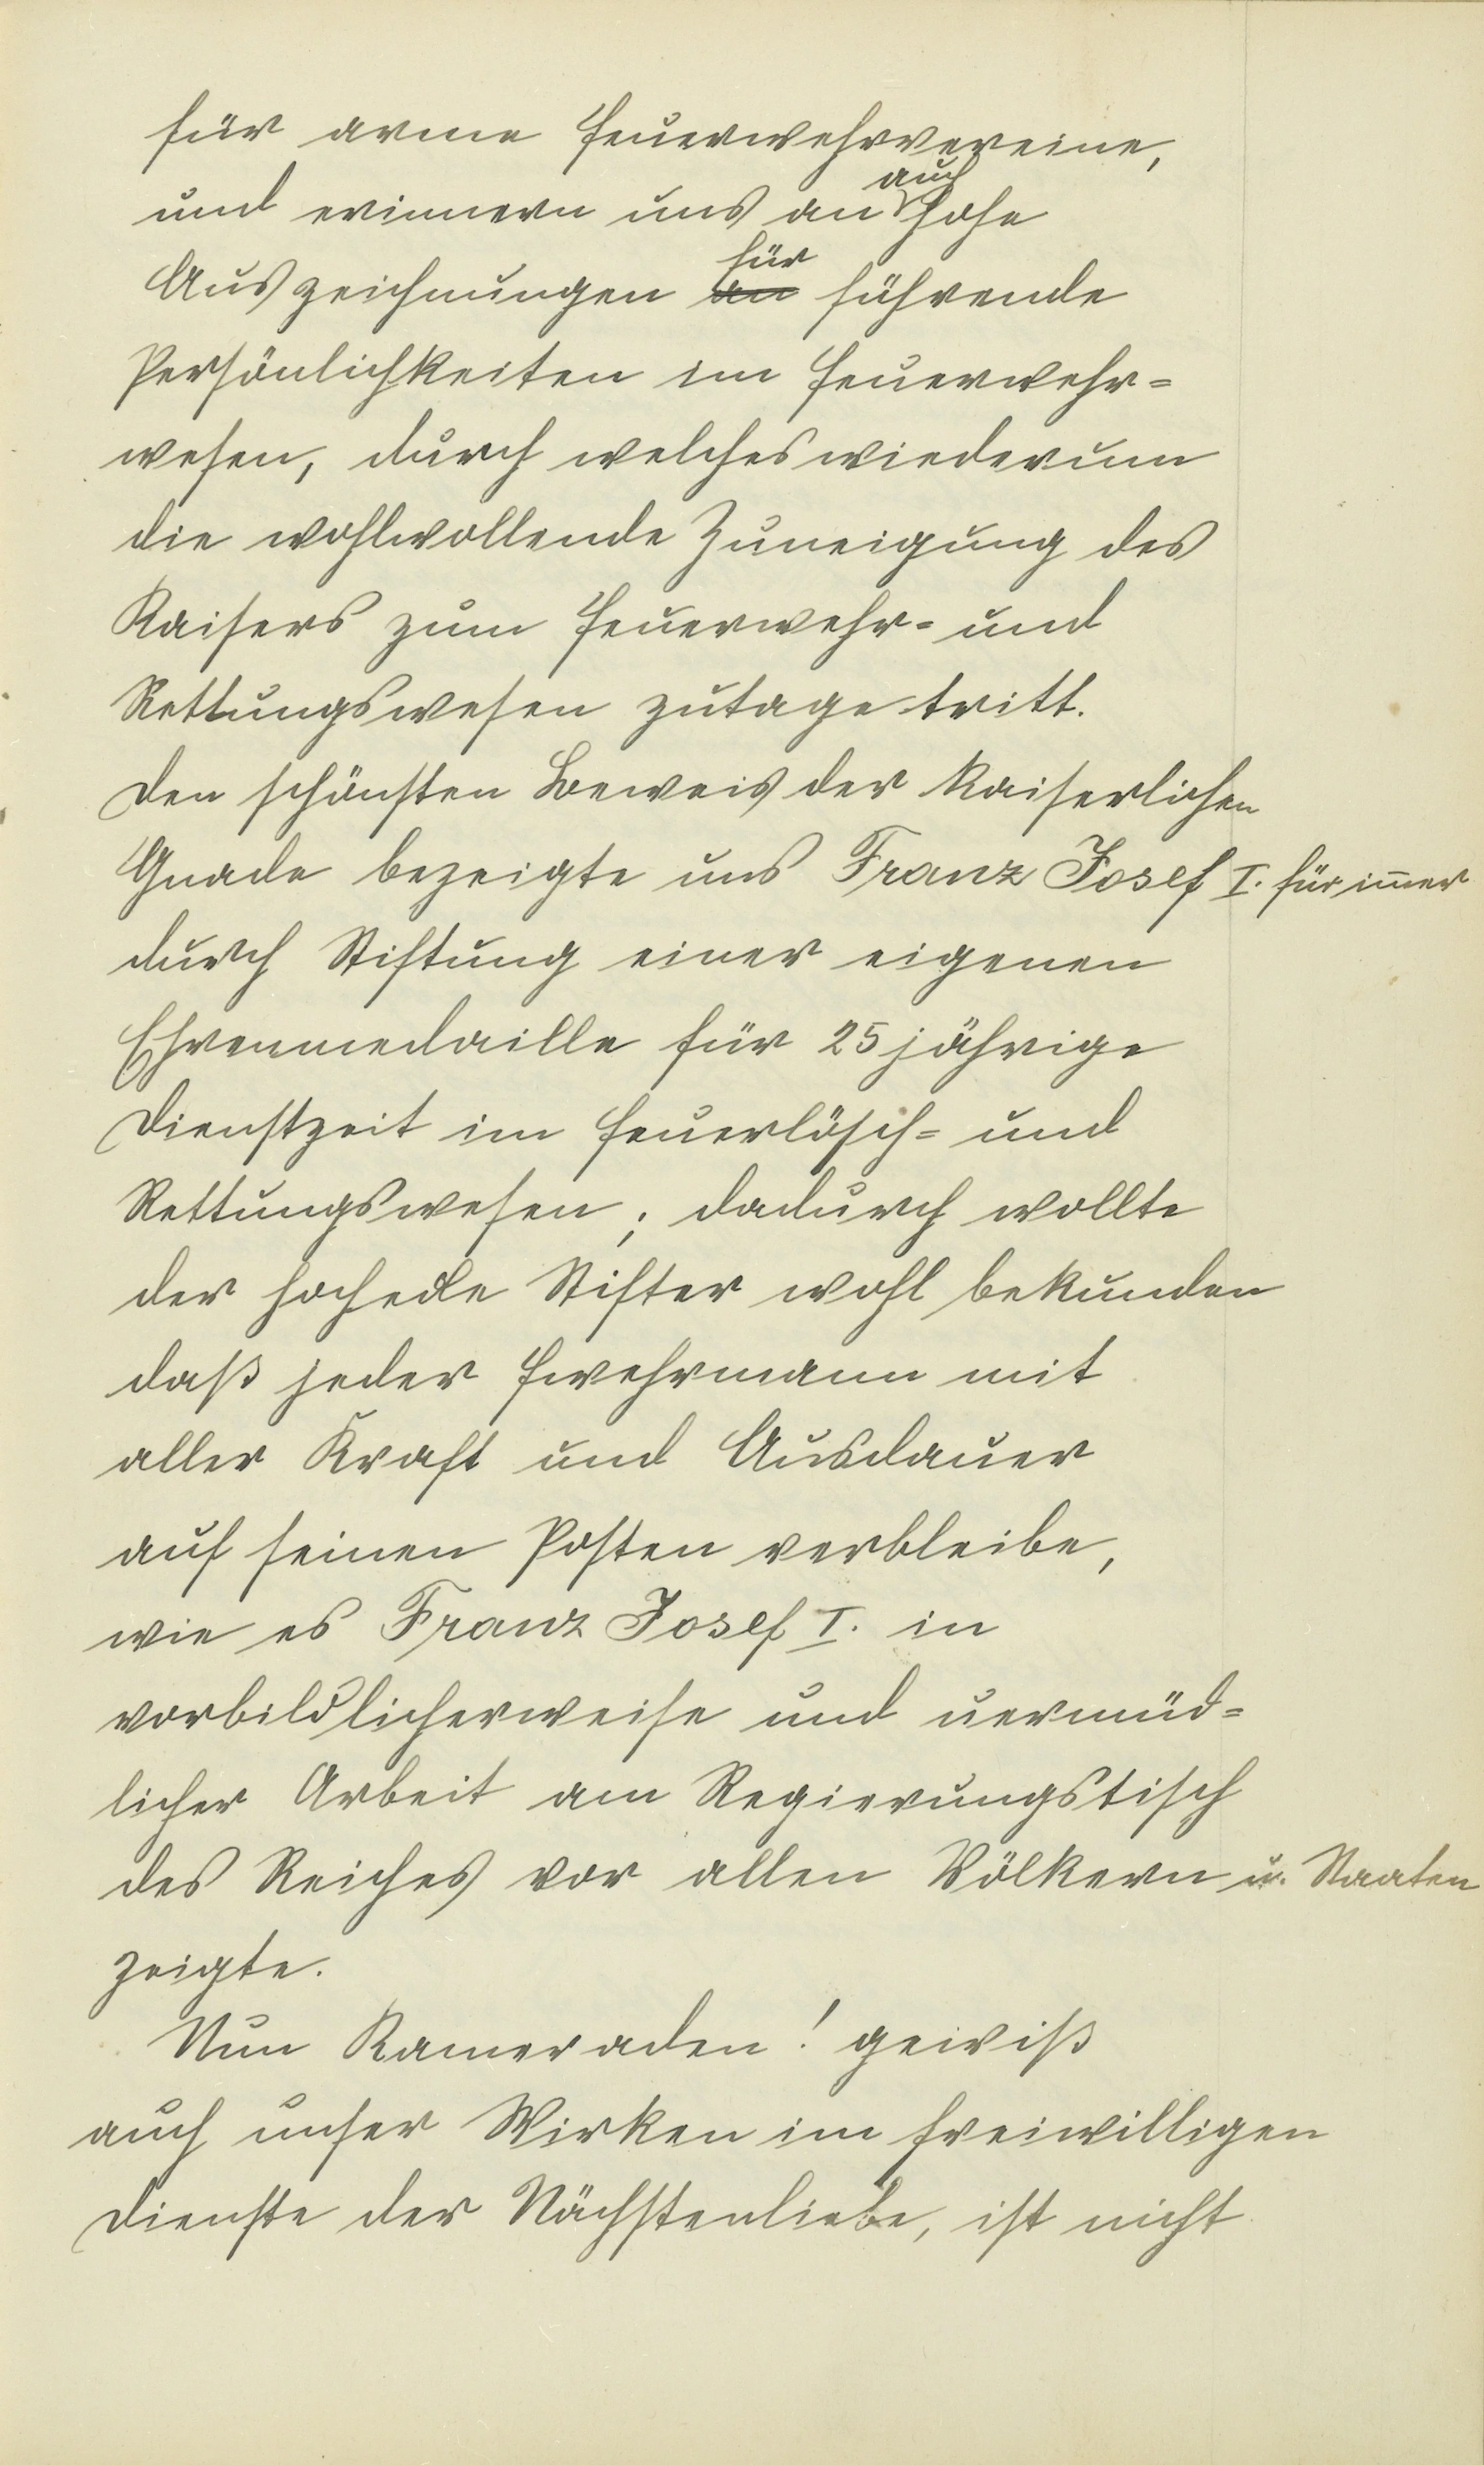 für arme Feuerwehrvereine,
und erinnern uns an auch hohe
Auszeichnungen an für führende
Persönlichkeiten im Feuerwehr=
wesen, durch welches wiederum
die wohlwollende Zuneigung des
Kaisers zum Feuerwehr= und
Rettungswesen zutage tritt.
Den schönsten Beweis der Kaiserlichen
Gnade bezeigte uns Franz Josef I. für im̅er
durch Stiftung einer eigenen
Ehrenmedaille für 25jährige
Dienstzeit im Feuerlösch= und
Rettungswesen; dadurch wollte
der hochedle Stifter wohl bekunden
daß jeder Fwehrmann mit
aller Kraft und Ausdauer
auf seinen Posten verbleibe,
wie es Franz Josef I. in
vorbildlicherweise und uermüd=
licher Arbeit am Regierungstisch
des Reiches vor allen Völkern u. Staaten
zeigte.
Nun Kameraden! gewiß
auch unser Wirken im freiwilligen
Dienste der Nächstenliebe, ist nicht